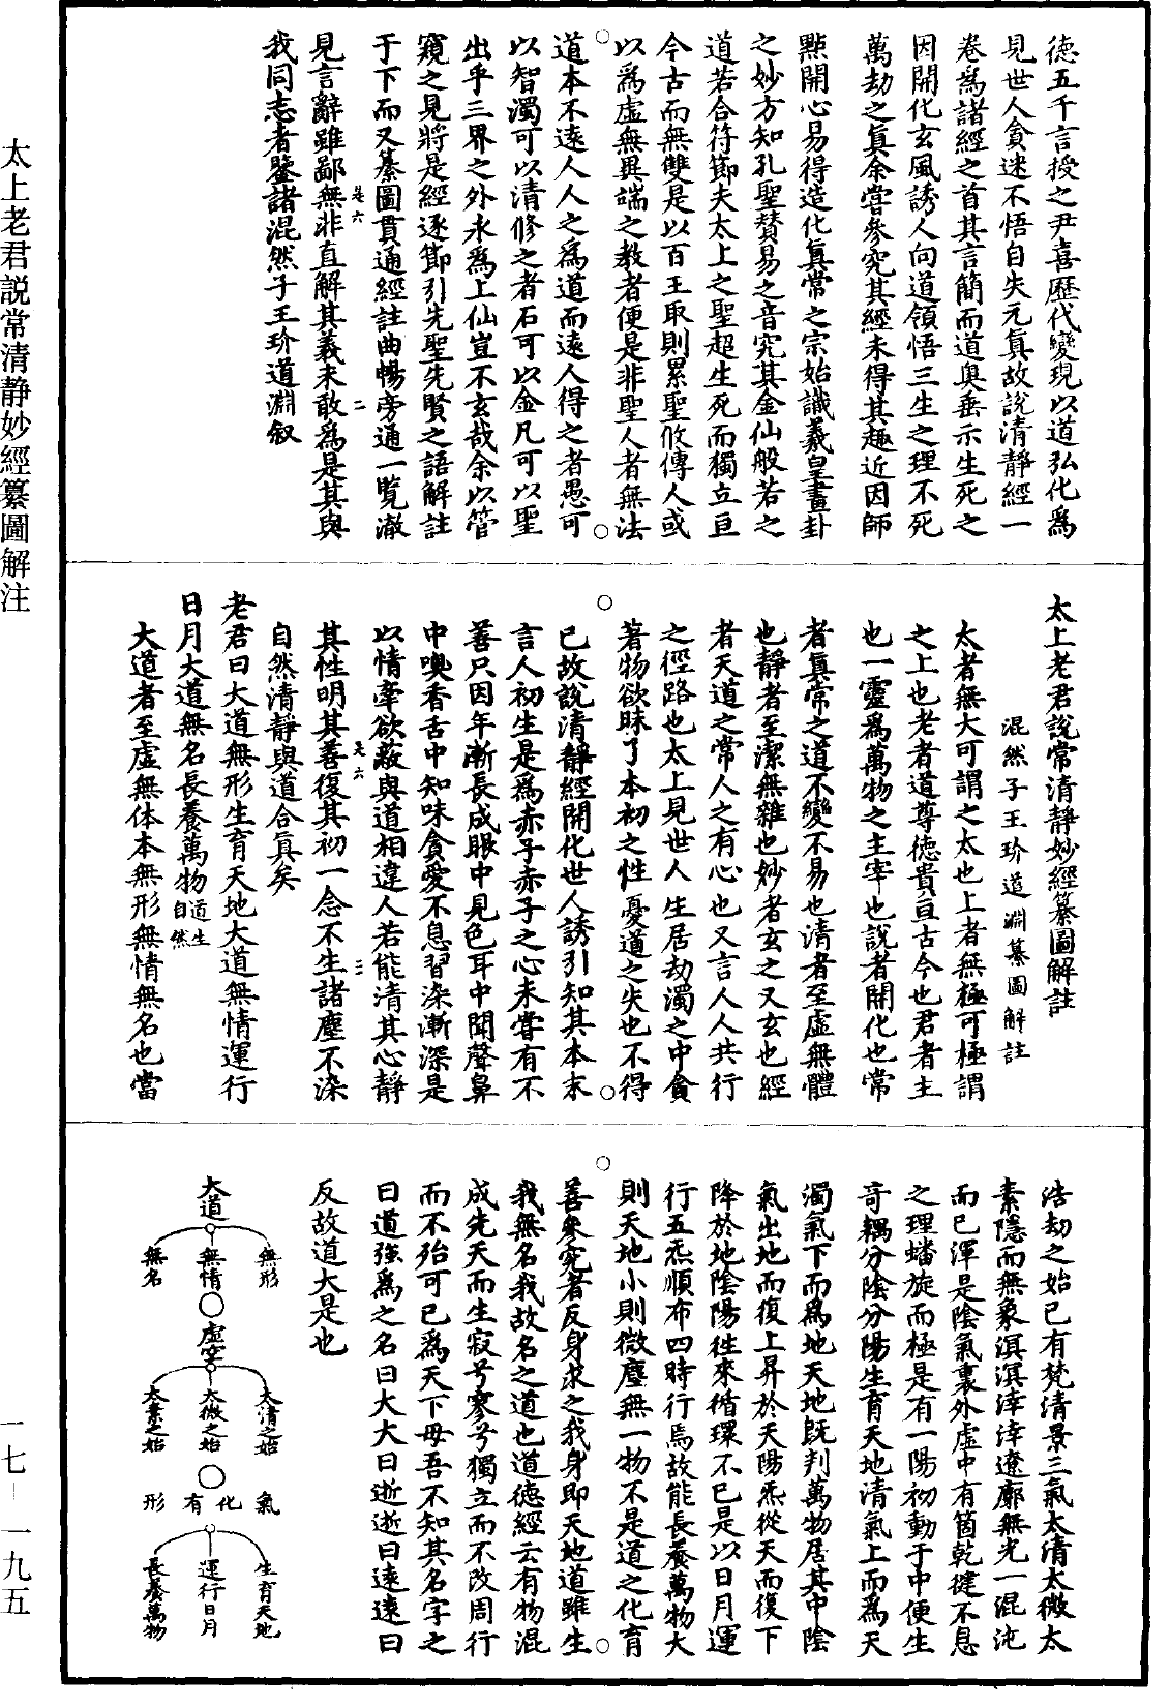 太上老君説常清靜妙經纂圖解注
一七—一九五
德五千言授之尹喜歷代變現以道弘化爲
見世人貪迷不悟自失元真故說清靜經一
卷爲諸經之首其言簡而道奧垂示生死之
因開化玄風誘人向道領悟三生之理不死
萬劫之真余嘗參究其經未得其趣近因師
點開心易得造化真常之宗始識羲皇畫卦
之妙方知孔聖賛易之音究其金仙般若之
道若合符節夫太上之聖超生死而獨立亘
今古而無雙是以百王取則累聖攸傳人或
以爲虛無異端之教者便是非聖人者無法
道本不遠人人之爲道而遠人得之者愚可
以智濁可以清脩之者石可以金凡可以聖
出乎三界之外永爲上仙豈不玄哉余以管
窺之見將是經逐節引先聖先賢之語解註
于下而又纂圖貫通經註曲暢旁通一覧澈
見言辭雖鄙無非直解其義未敢爲是其與
是六 二
我同志者鑒諸混然子王玠道淵敘
太上老君說常清靜妙經纂圖解註
混然子王玠道淵纂圖解註
太者無大可謂之太也上者無極可極謂
之上也老者道尊德貴亘古今也君者主
也一靈爲萬物之主宰也說者開化也常
者真常之道不變不易也清者至虛無體
也靜者至潔無雜也妙者玄之又玄也經
者天道之常人之有心也又言人人共行
之徑路也太上見世人生居劫濁之中貪
著物欲昧了本初之性憂道之失也不得
已故說清靜經開化世人誘引知其本末
言人初生是爲赤子赤子之心未嘗有不
善只因年漸長成眼中見色耳中聞聲鼻
中嗅香舌中知味貪愛不息習染漸深是
以情牽欲蔽與道相違人若能清其心靜
是六 三
其性明其善復其初一念不生諸塵不染
自然清靜與道合真矣
老君曰大道無形生育天地大道無情運行
日月大道無名長養萬物道生自然
大道者至虛無体本無形無情無名也當
浩劫之始已有梵清景三氣太清太微太
素隱而無象溟溟涬涬遼廓無光一混沌
而已渾是陰氣裏外虛中有箇乾健不息
之理蟠旋而極是有一陽初動于中便生
奇耦分陰分陽生育天地清氣上而爲天
濁氣下而爲地天地既判萬物居其中陰
氣出地而復上昇於天陽炁從天而復下
降於地陰陽徃來循環不已是以日月運
行五炁順布四時行焉故能長養萬物大
則天地小則微塵無一物不是道之化育
善參究者反身求之我身即天地道雖生
我無名我故名之道也道德經云有物混
成先天而生寂兮寥兮獨立而不改周行
而不殆可已爲天下母吾不知其名字之
曰道強爲之名曰大大曰逝逝曰遠遠曰
反故道大是也
大道
無形
無情
無名
虛空
太清之始
太微之始
太素之始
氣化有形
生育天地
運行日月
長養萬物